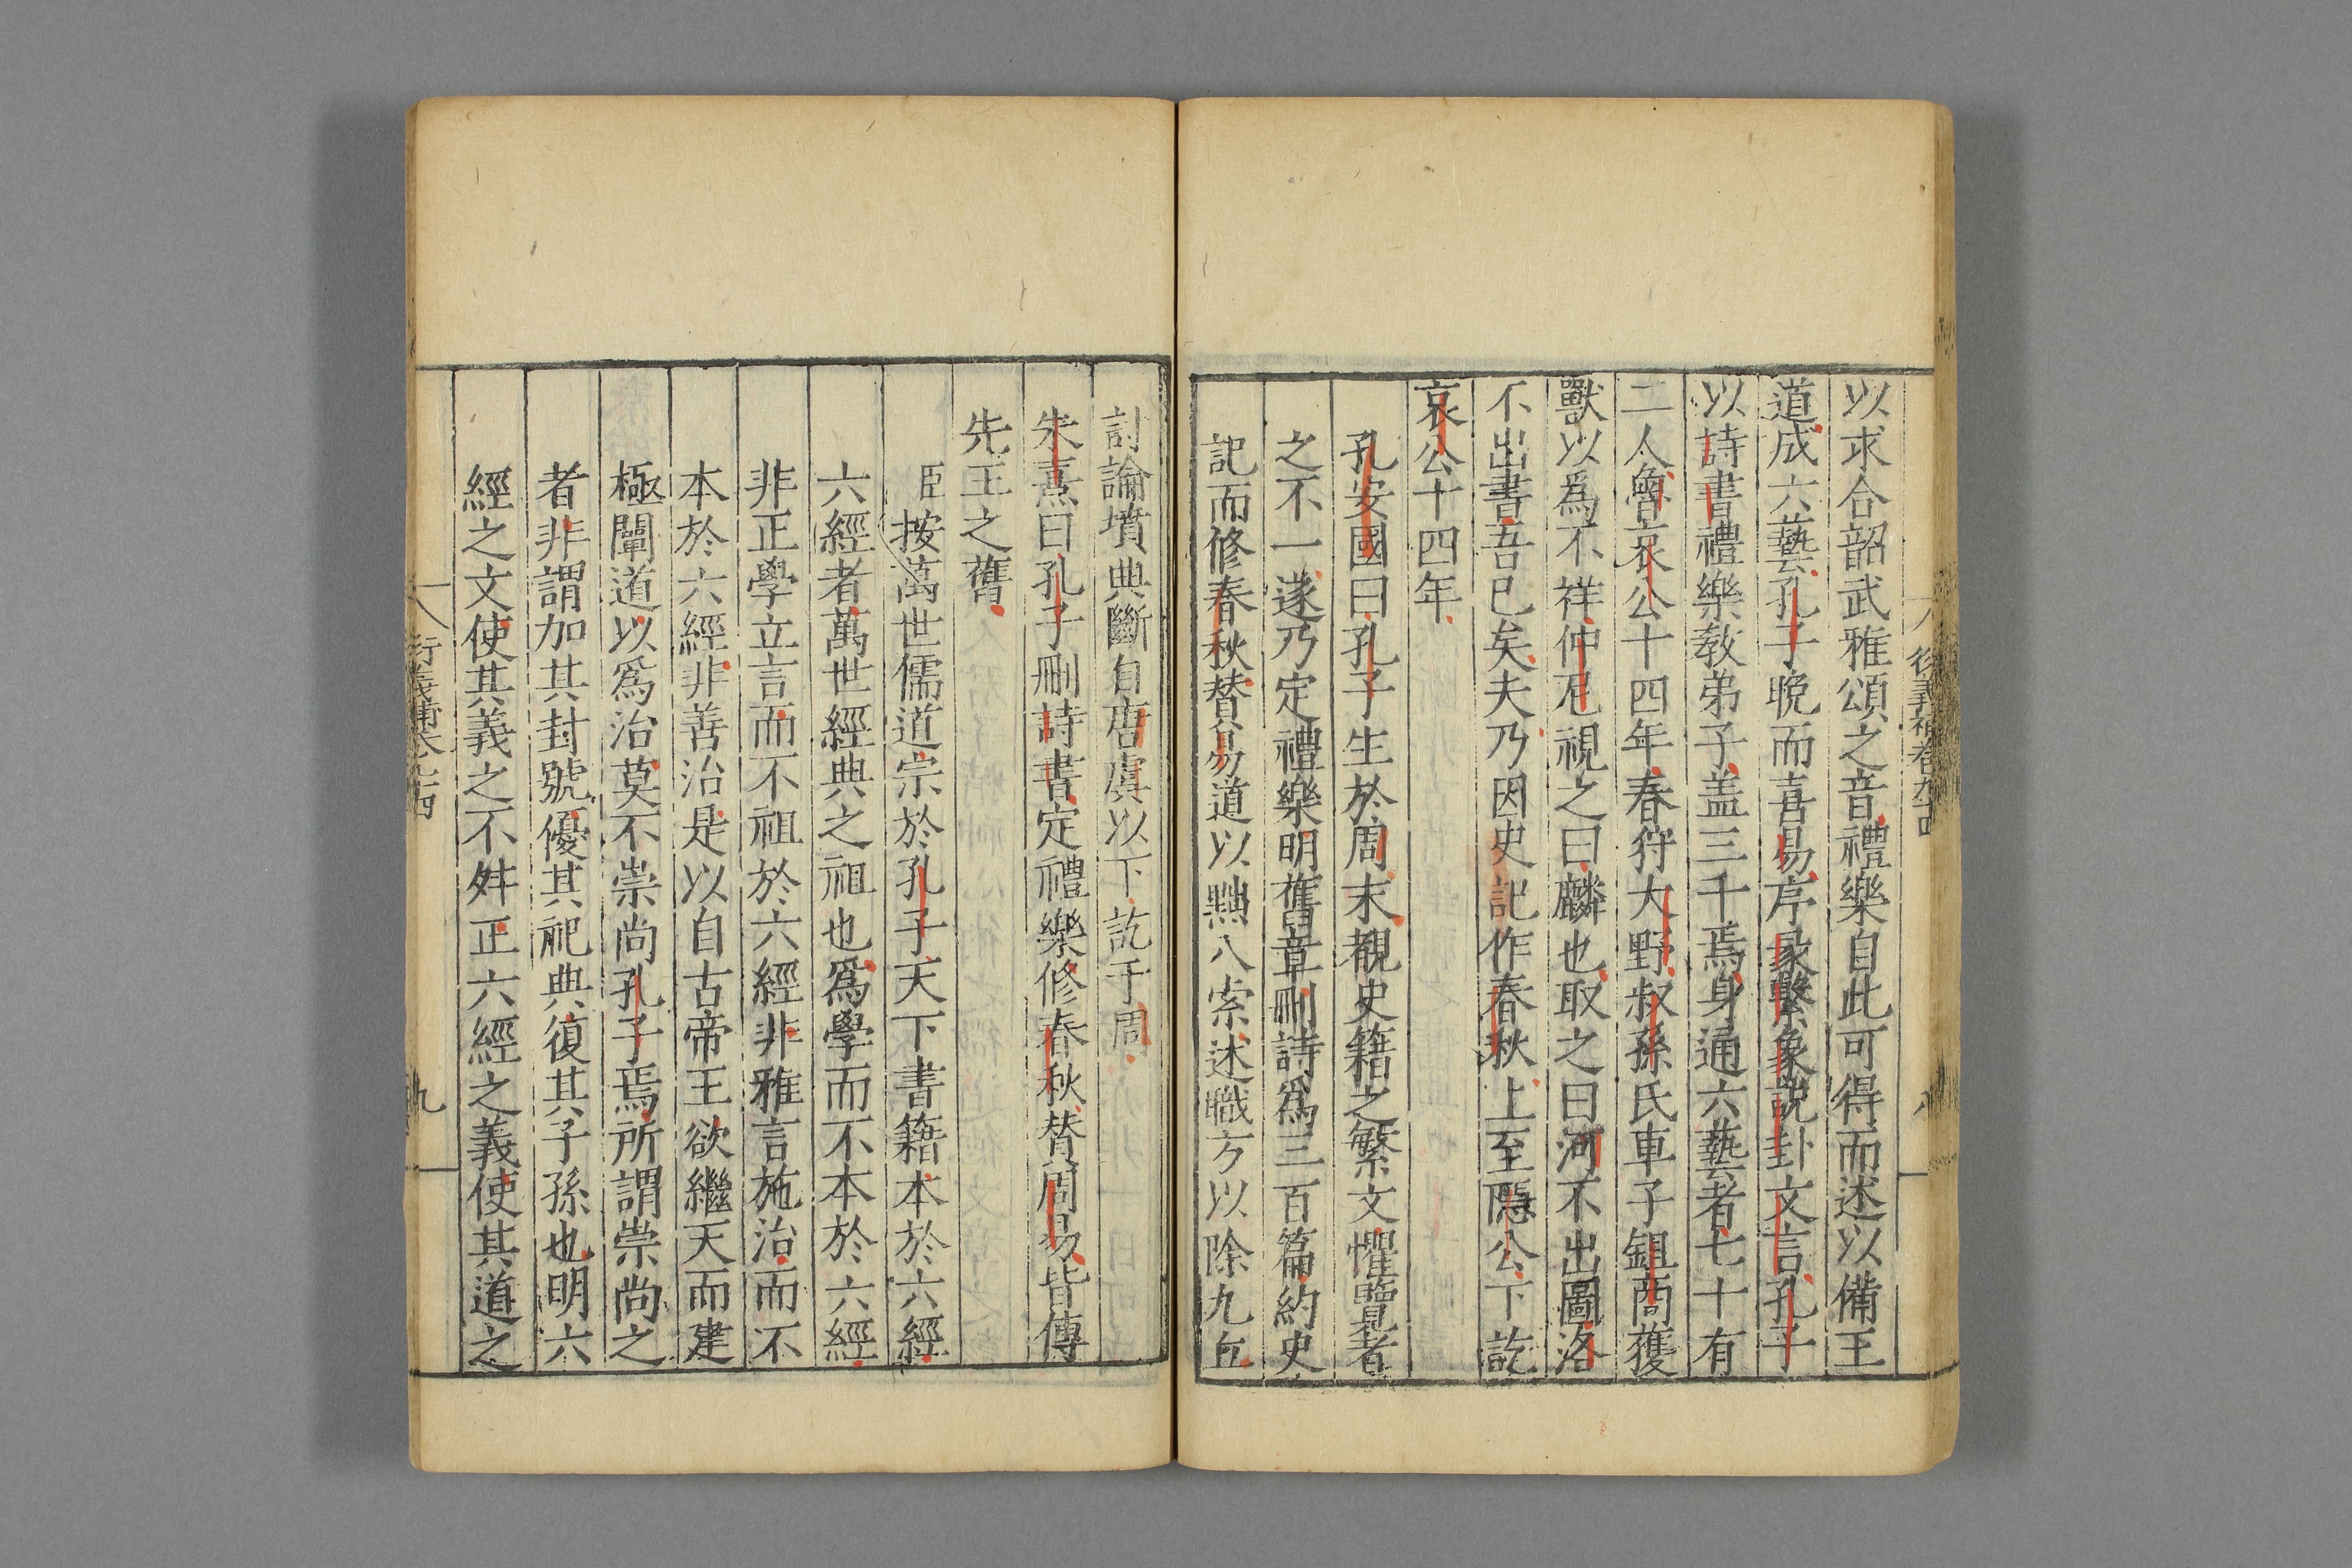 以求合韶武雅頌之音禮樂自此可得而述以備王
道成六藝孔子晚而喜易序彖繫象說卦文言孔子
以詩書禮樂教弟子盖三千焉身通六藝者七十有
二人魯哀公十四年春狩大野叔孫氏車子鉏商獲
獸以爲不祥仲尼視之曰麟也取之曰河不出圖洛
不出書吾已矣夫乃因史記作春秋上至隱公下訖
哀公十四年
孔安國曰孔子生於周末覩史籍之繁文懼覽者
之不一遂乃定禮樂明舊章刪詩爲三百篇約史
記而修春秋賛易道以黜八索述職方以除九丘
討論墳典斷自唐虞以下訖于周
朱熹曰孔子刪詩書定禮樂修春秋賛周易皆傳
先王之舊
臣按萬世儒道宗於孔子天下書籍本於六經
六經者萬世經典之祖也爲學而不本於六經
非正學立言而不祖於六經非雅言施治而不
本於六經非善治是以自古帝王欲繼天而建
極闡道以爲治莫不崇尚孔子焉所謂崇尚之
者非謂加其封號優其祀典復其子孫也明六
經之文使其義之不舛正六經之義使其道之
衍義補卷九十四
九